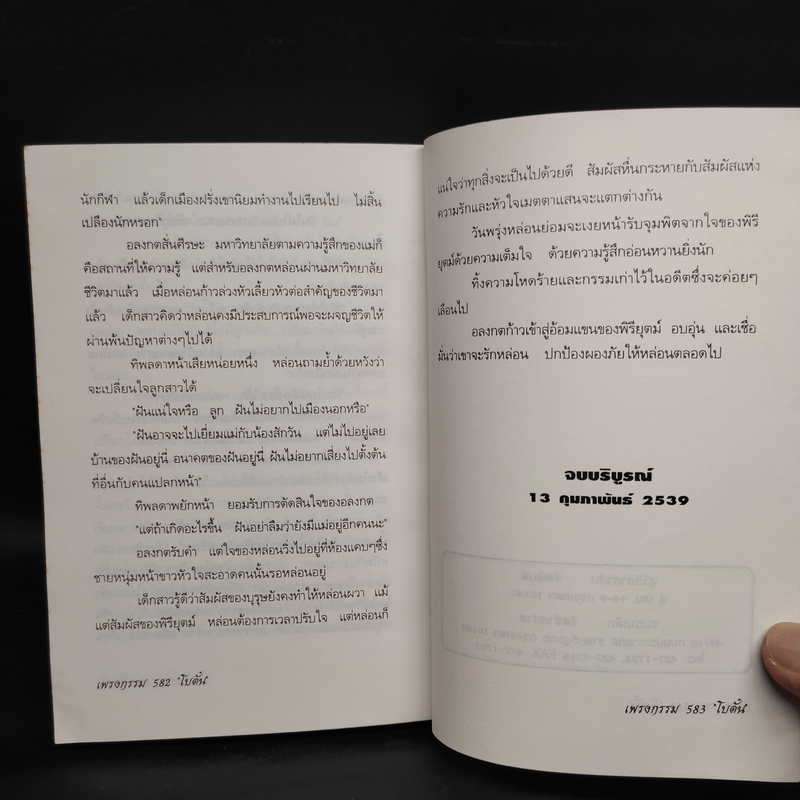 นักกีฬา แล้วเด็กเมืองฝรั่งเขานิยมทำงานไปเรียนไป ไม่สิ้น
เปลืองนักหรอก"
อลงกตสั่นศีรษะ มหาวิทยาลัยตามความรู้สึกของแม่ก็
คือสถานที่ให้ความรู้ แต่สำหรับอลงกตหล่อนผ่านมหาวิทยาลัย
ชีวิตมาแล้ว เมื่อหล่อนก้าวล่วงหัวเลี้ยวหัวต่อสำคัญของชีวิตมา
แล้ว เด็กสาวคิดว่าหล่อนคงมีประสบการณ์พอจะผจญชีวิตให้
ผ่านพ้นปัญหาต่างๆไปได้
ทิพลดาหน้าเสียหน่อยหนึ่ง หล่อนถามย้ำด้วยหวังว่า
จะเปลี่ยนใจลูกสาวได้
"ฝันแน่ใจหรือ ลูก ฝันไม่อยากไปเมืองนอกหรือ"
"ฝันอาจจะไปเยี่ยมแม่กับน้องสักวัน แต่ไม่ไปอยู่เลย
บ้านของฝันอยู่นี่ อนาคตของฝันอยู่นี่ ฝันไม่อยากเสี่ยงไปตั้งต้น
ที่อื่นกับคนแปลกหน้า"
ทิพลดาพยักหน้า ยอมรับการตัดสินใจของอลงกต
"แต่ถ้าเกิดอะไรขึ้น ฝันอย่าลืมว่ายังมีแม่อยู่อีกคนนะ"
อลงกตรับคำ แต่ใจของหล่อนวิ่งไปอยู่ที่ห้องแคบๆซึ่ง
ชายหนุ่มหน้าขาวหัวใจสะอาดคนนั้นรอหล่อนอยู่
เด็กสาวรู้ดีว่าสัมผัสของบุรุษยังคงทำให้หล่อนผวา แม้
แต่สัมผัสของพิรียุตม์ หล่อนต้องการเวลาปรับใจ แต่หล่อนก็
เพรงกรรม 582 โบตั๋น
แน่ใจว่าทุกสิ่งจะเป็นไปด้วยดี สัมผัสหื่นกระหายกับสัมผัสแห่ง
ความรักและหัวใจเมตตาแสนจะแตกต่างกัน
วันพรุ่งหล่อนย่อมจะเงยหน้ารับจุมพิตจากใจของพิรี
ยุตม์ด้วยความเต็มใจ ด้วยความรู้สึกอ่อนหวานยิ่งนัก
ทิ้งความโหดร้ายและกรรมเก่าไว้ในอดีตซึ่งจะค่อยๆ
เลือนไป
อลงกตก้าวเข้าสู่อ้อมแขนของพิรียุตม์ อบอุ่น และเชื่อ
มั่นว่าเขาจะรักหล่อน ปกป้องผองภัยให้หล่อนตลอดไป
จบบริบูรณ์
13 กุมภาพันธ์ 2539
เพรงกรรม 583 โบตั๋น